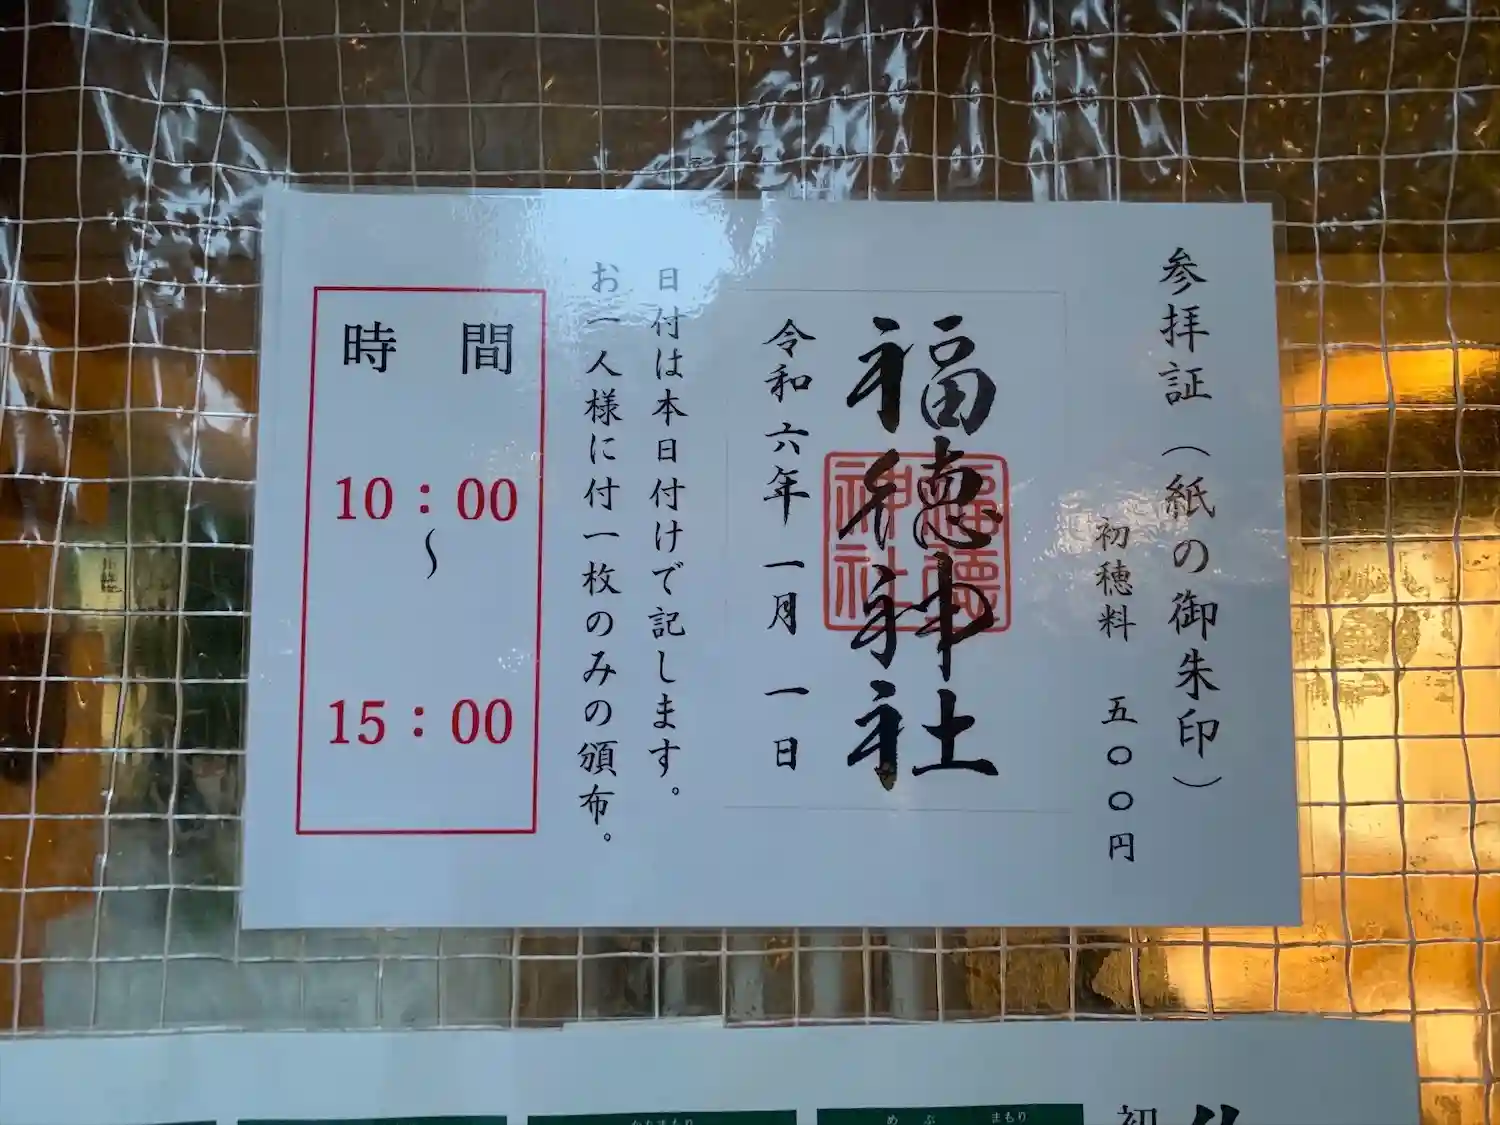 参拝証（紙の御朱印）
初穂料　五〇〇円
福徳神社
福徳神社
令和六年一月一日
日付は本日付けで記します。
お一人様に付一枚のみの頒布。
時間
10：00
〜
15：00
初
めぶ
まもり